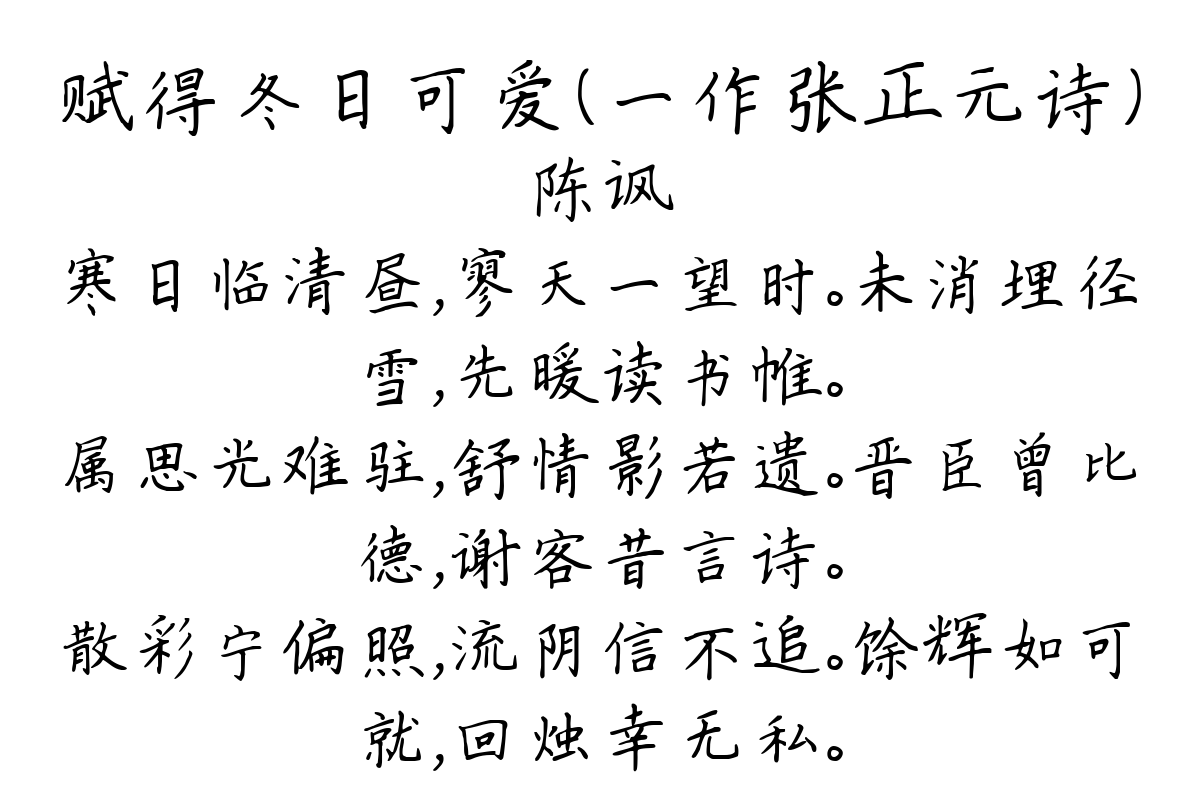 赋得冬日可爱(一作张正元诗)
陈讽
寒日临清昼,寥天一望时。未消埋径
雪,先暖读书帷。
属思光难驻,舒情影若遗。晋臣曾比
德,谢客昔言诗。
散彩宁偏照,流阴信不追。馀辉如可
就,回烛幸无私。